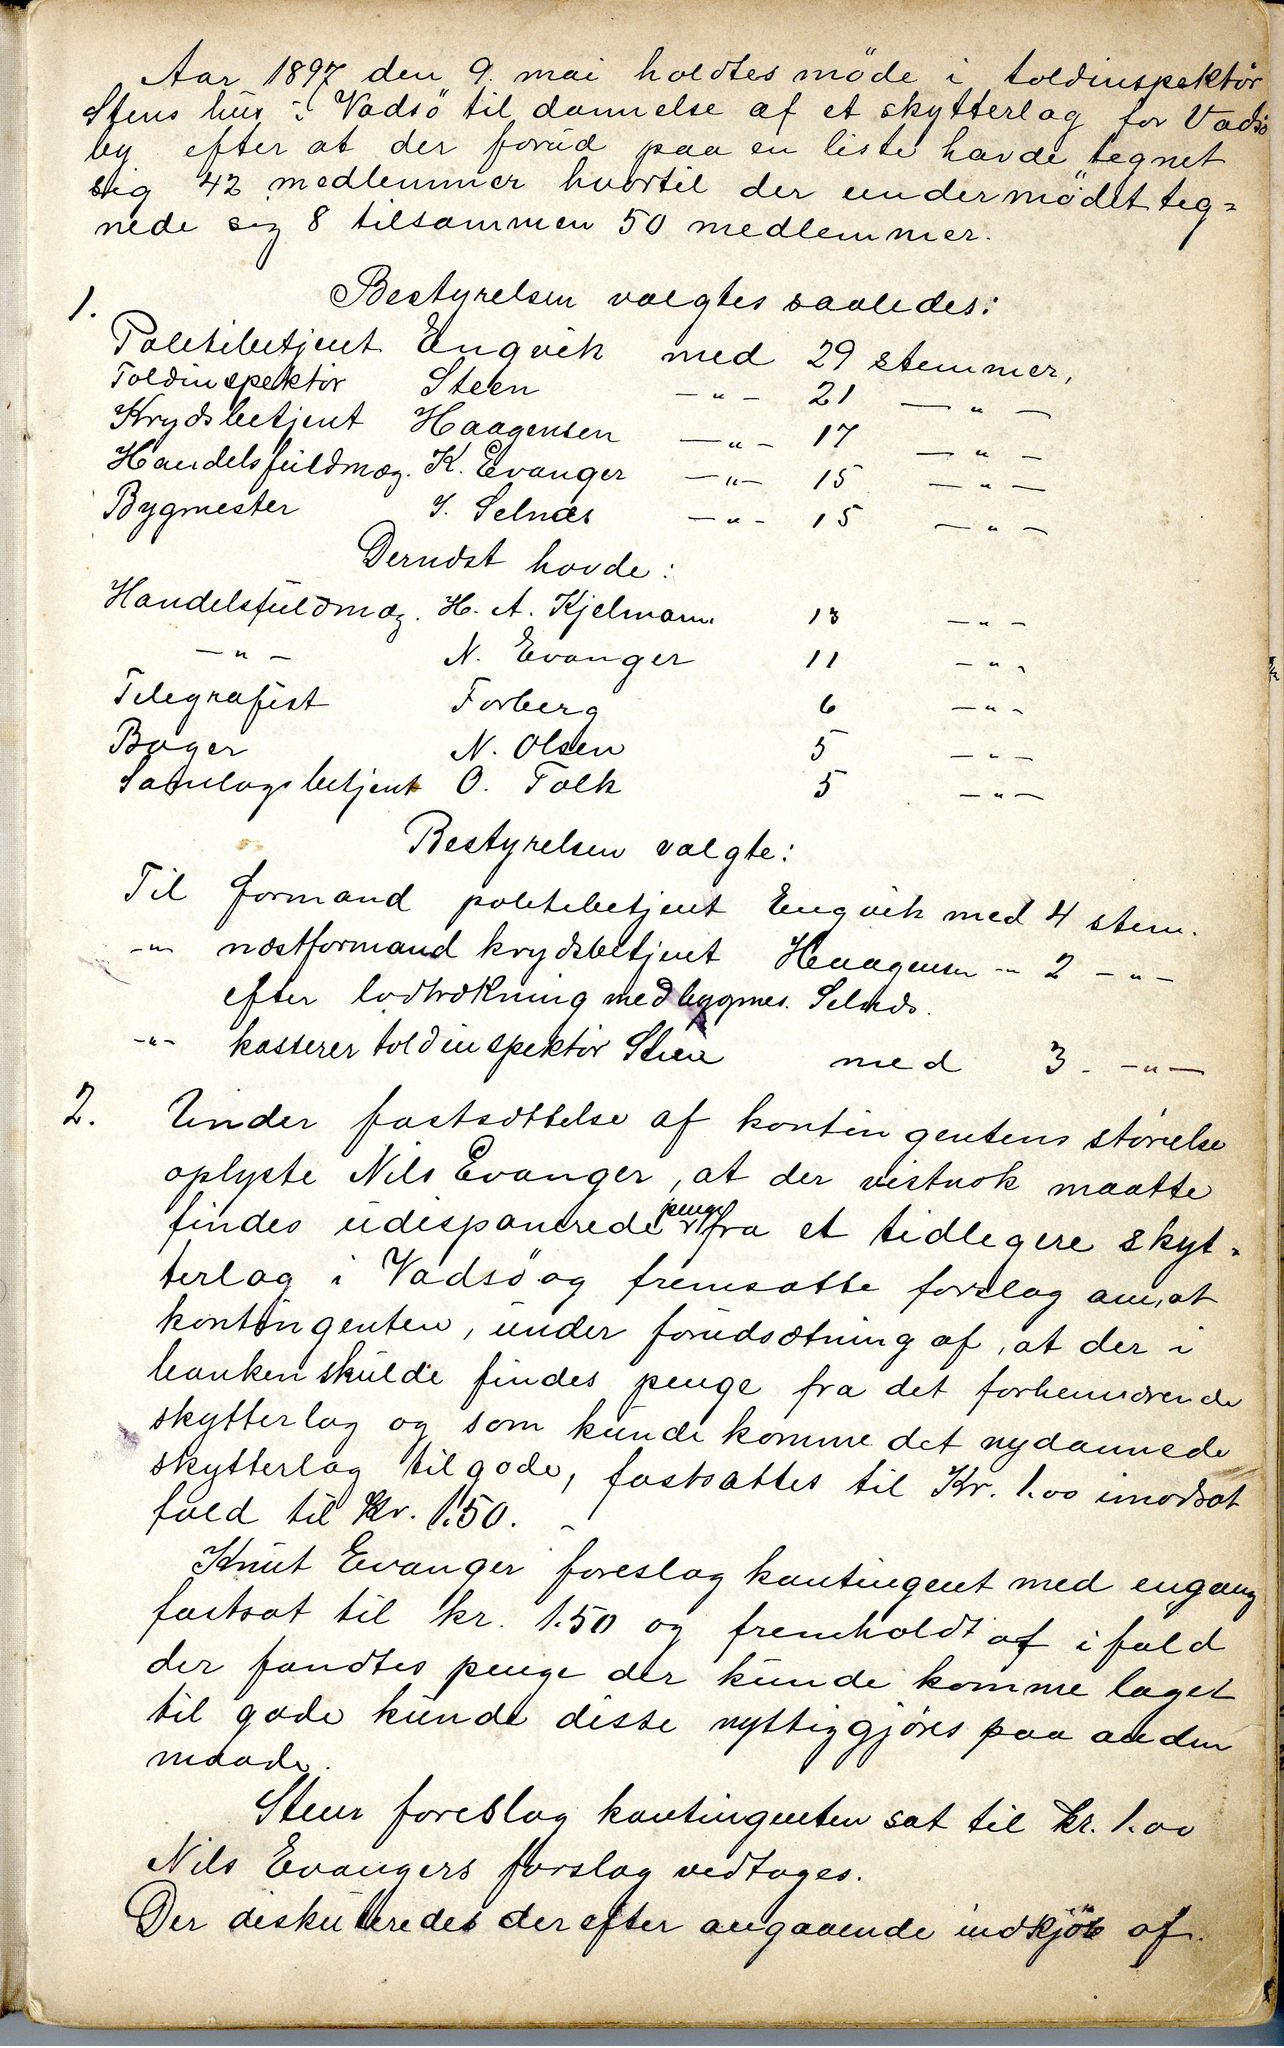 Aar 1897 den 9. mai holdtes møde i toldinspektør
Stens hus i Vadsö til dannelse af et skytterlag for Vadsö
by efter at der forud paa en liste havde tegnet
sig 42 medlemmer hvortil der under mødet teg=
nede sig 8 tilsammen 50 medlemmer.
1. Bestyrelsen valgtes saaledes:
Politibetjent Engvik med 29 stemmer,
Toldinspektør Steen -"- 21 -"-
Krydsbetjent Haagensen -"- 17 -"-
Handelsfuldmæg. K. Evanger -"- 15 -"-
Bygmester J. Selnæs -"- 15 -"-
Dernæst havde:
Handelsfuldmæg. H. A. Kjelmann 13 -"-
-"- N. Evanger 11 -"-
Telegrafist Forberg 6 -"-
Bager N. Olsen 5 -"-
Samlagsbetjent O. Falk 5 -"-
Bestyrelsen valgte:
Til formand politibetjent Engvik med 4 stem.
-"- næstformand krydsbetjent Haagensen -"- 2 -"-
efter lodtrækning med bygmes. Selnæs.
-"- kasserer toldinspektør Steen med 3. -"-
2. Under fastsættelse af kontingentens størrelse
oplyste Nils Evanger, at der vistnok maatte
findes udisponerede penge fra et tidligere skyt=
terlag i Vadsö og fremsatte forslag om, at
kontingenten, under forudsætning af, at der i
banken skulde findes penge fra det forhenværende
skytterlag og som kunde komme det nydannede
skytterlag tilgode, fastsattes til Kr. 1.00 i modsat
fald til Kr. 1.50.
Knut Evanger foreslog kontingent med engang
fastsat til kr. 1.50 og fremholdt at i fald
der fandtes penge der kunde komme laget
til gode kunde disse nyttiggjøres paa anden
maade.
Steen foreslog kontingenten sat til kr. 1.00
Nils Evangers forslag vedtoges.
Der diskuteredes derefter angaaende indkjöb af.